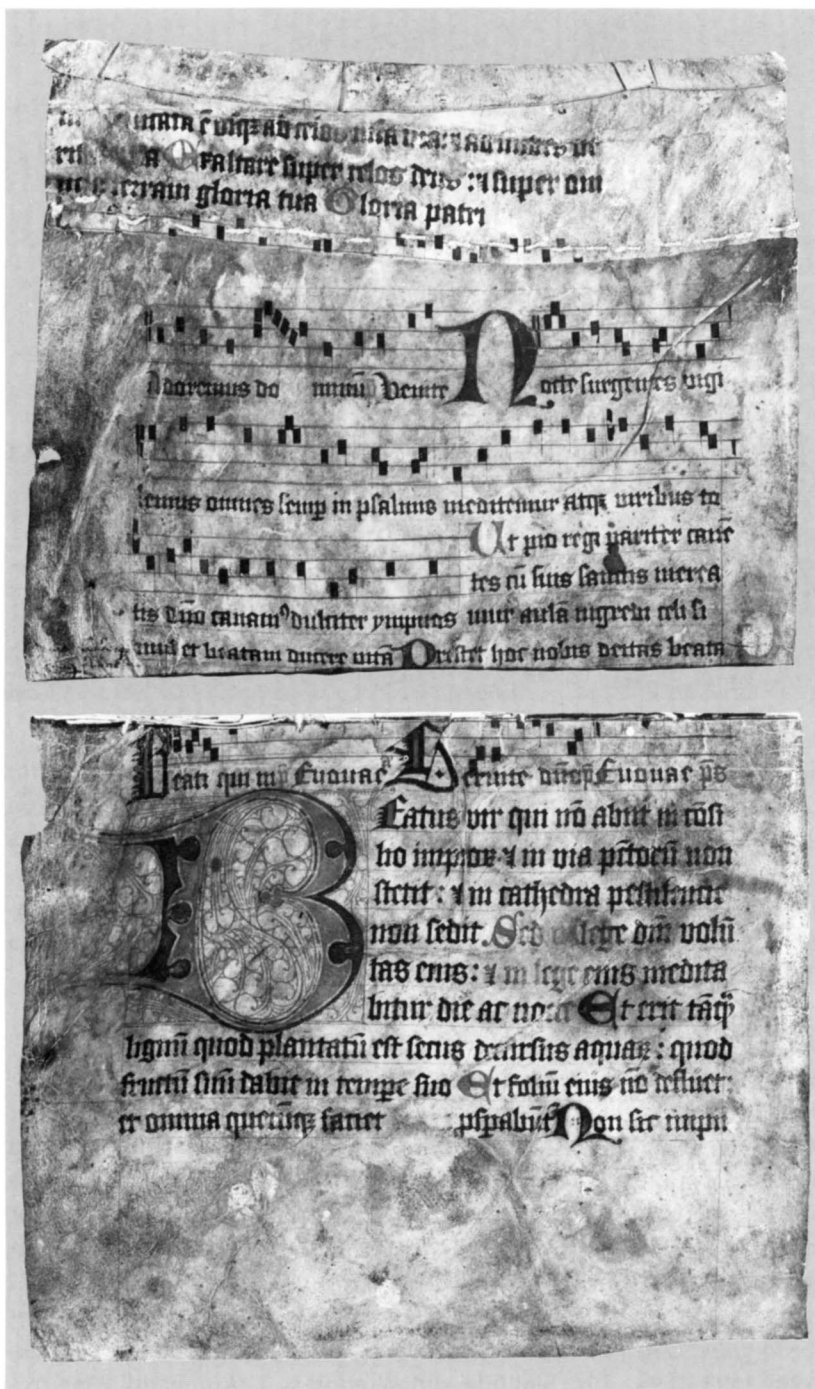 Exaltare super celos deus : ⁊ super om
terram gloria tua Gloria patri
Adoremus do minū p̄ Venite Nocte surgentes vigi
lemus omnes semp̲ in psalmis meditemur atq̲ꝫ viribus to
Ut pio regi pariter canē
tes cū suis sanctis merea
tis dn̄o canamꝰ dulciter ympnos mur aulā ingredi celi si
mul et beatam ducere vitā Prestet hoc nobis deitas beata
Beati qui Euouae Seruite Euouae p̄s
Beatus vir qui nō abiit in cōsi
lio impioꝝ ⁊ in via pc̄toꝝ non
stetit : ⁊ in cathedra pestilencie
non sedit. Sed lege dn̄i volū
tas eius : ⁊ in lege eius medita
bitur die ac nocte Et erit tāꝙ̄
lignū quod plantatū est secus decursus aquaꝝ : quod
fructū suū dabit in tempe suo Et foliū eius nō defluet :
et omnia quecūqꝫ faciet pspabūt᷑ Non sic impii